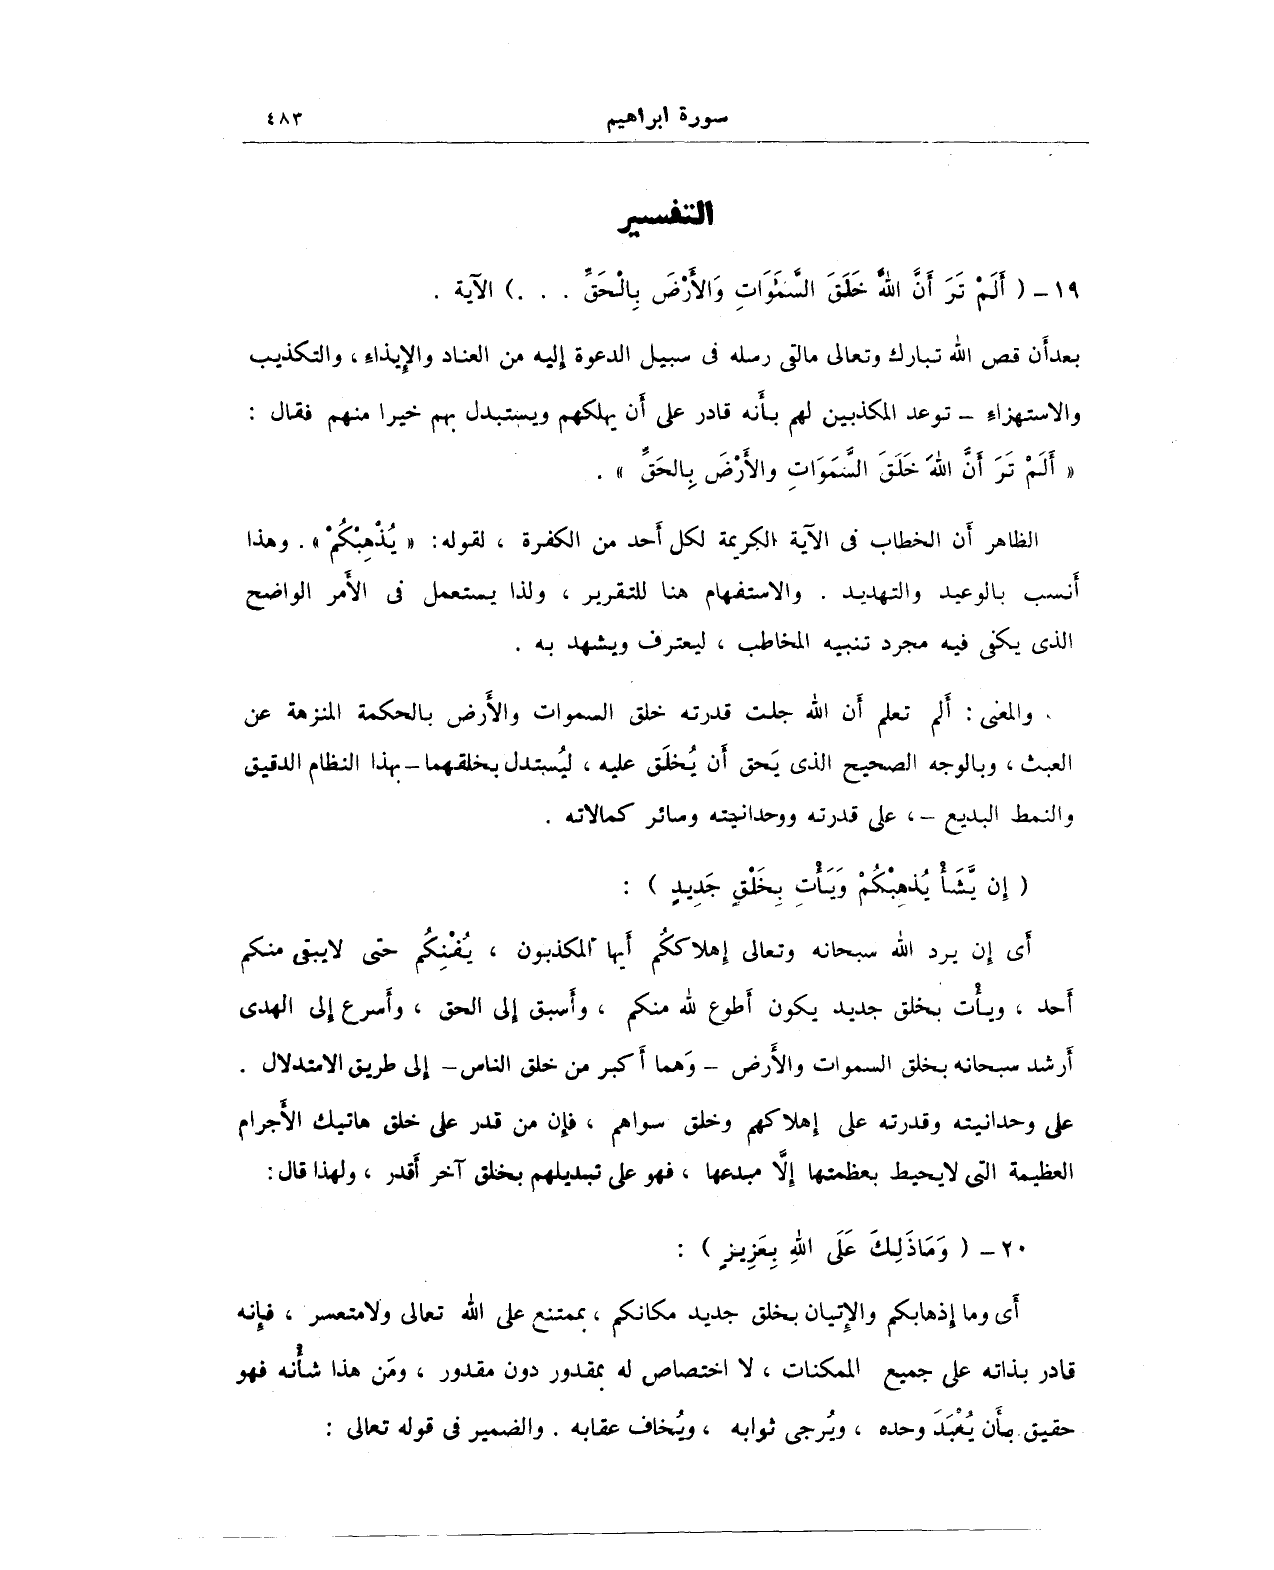 سورة ابراهيم
٤٨٣
التفسير
١٩ – ( أَلَمْ تَرَ أَنَّ اللهَ خَلَقَ السَّمٰوَاتِ وَالأَرْضَ بِالْحَقِّ . . .) الآية .
بعدأن قص الله تبارك وتعالى مالقى رسله فى سبيل الدعوة إليه من العناد والإيذاء ، والتكذيب
والاستهزاء – توعد المكذبين لهم بأنه قادر على أن يهلكهم ويستبدل بهم خيرا منهم فقال :
« أَلَمْ تَرَ أَنَّ اللهَ خَلَقَ السَّمَوَاتِ والأَرْضَ بِالحَقِّ » .
الظاهر أن الخطاب فى الآية الكريمة لكل أحد من الكفرة ، لقوله : « يُذْهِبْكُمْ » . وهذا
أنسب بالوعيد والتهديد . والاستفهام هنا للتقرير ، ولذا يستعمل فى الأمر الواضح
الذى يكفى فيه مجرد تنبيه المخاطب ، ليعترف ويشهد به .
والمعنى : ألم تعلم أن الله جلت قدرته خلق السموات والأرض بالحكمة المنزهة عن
العبث ، وبالوجه الصحيح الذى يَحق أن يُخلَق عليه ، ليُستدل بخلقهما – بهذا النظام الدقيق
والنمط البديع – ، على قدرته ووحدانيته وسائر كمالاته .
( إِن يَّشَأْ يُذهِبْكُمْ وَيَأْتِ بِخَلْقٍ جَدِيدٍ ) :
أى إن يرد الله سبحانه وتعالى إهلاككُم أيها المكذبون ، يُفْنِكُم حتى لايبقى منكم
أحد ، ويأْت بخلق جديد يكون أطوع لله منكم ، وأسبق إلى الحق ، وأسرع إلى الهدى
أرشد سبحانه بخلق السموات والأرض – وَهما أكبر من خلق الناس – إلى طريق الاستدلال .
على وحدانيته وقدرته على إهلاكهم وخلق سواهم ، فإن من قدر على خلق هاتيك الأجرام
العظيمة التى لايحيط بعظمتها إلَّا مبدعها ، فهو على تبديلهم بخلق آخر أقدر ، ولهذا قال :
٢٠ – ( وَمَاذَلِكَ عَلَى اللهِ بِعَزِيزٍ ) :
أى وما إذهابكم والإتيان بخلق جديد مكانكم ، بممتنع على الله تعالى ولامتعسر ، فإنه
قادر بذاته على جميع الممكنات ، لا اختصاص له بمقدور دون مقدور ، ومَن هذا شأْنه فهو
حقيق بأن يُعْبَدَ وحده ، ويُرجى ثوابه ، ويُخاف عقابه . والضمير فى قوله تعالى :